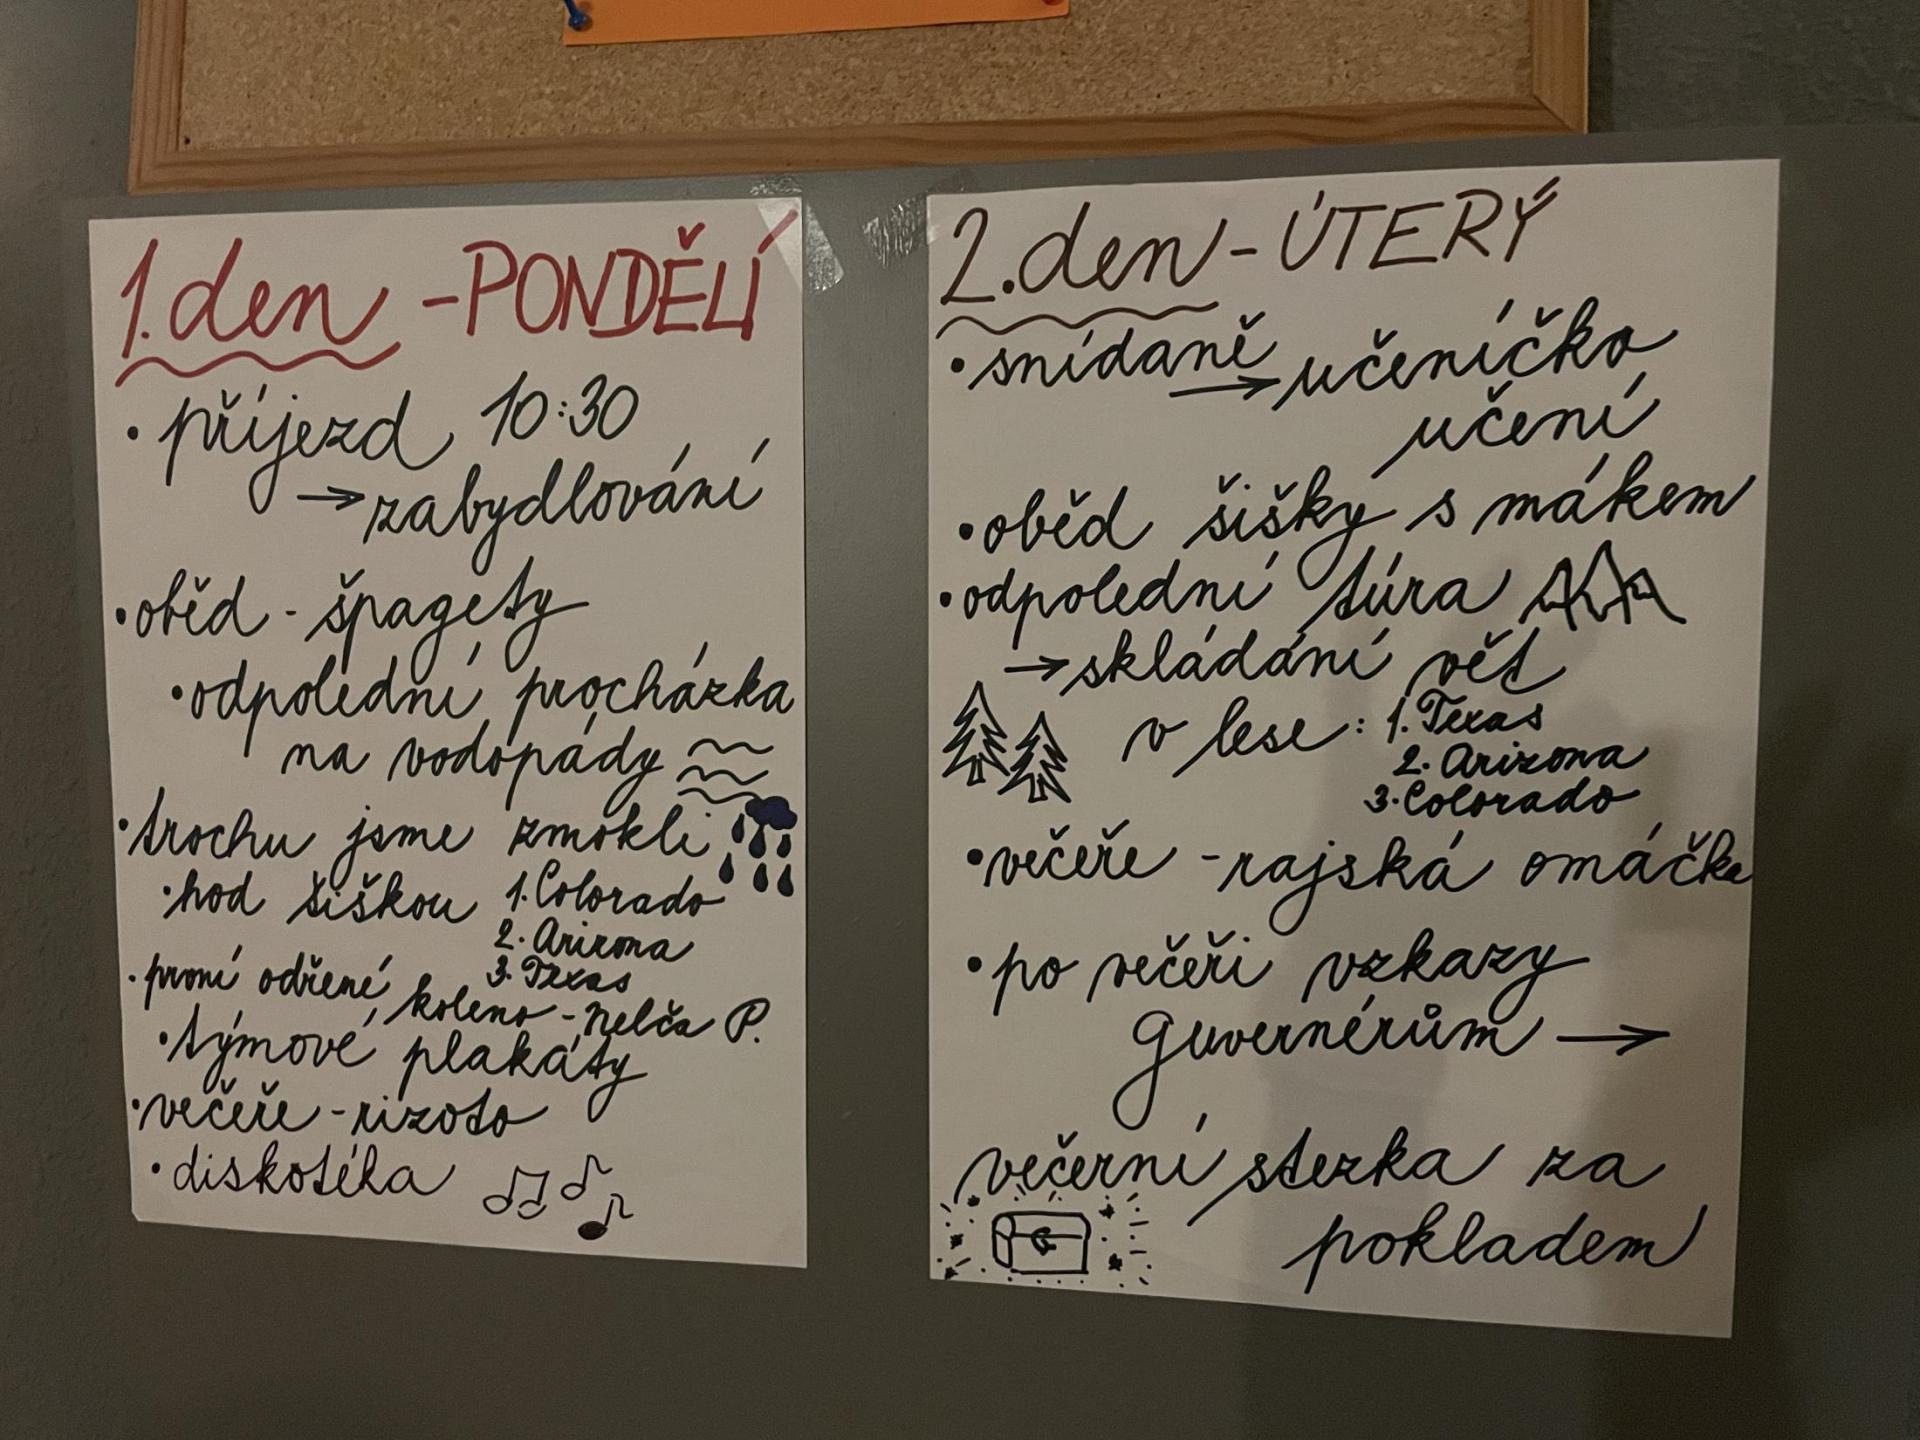 1. den - PONDĚLÍ
• příjezd 10:30
→ zabydlování
• oběd - špagety
• odpolední procházka
na vodopády
• trochu jsme zmokli
• hod šiškou 1. Colorado
2. Arizona
3. Texas
• první odřené koleno - Nelča P.
• týmové plakáty
• večeře - rizoto
• diskotéka
2. den - ÚTERÝ
• snídaně → učeníčko
učení
• oběd šišky s mákem
• odpolední túra
→ skládání vět
v lese: 1. Texas
2. Arizona
3. Colorado
• večeře - rajská omáčka
• po večeři vzkazy
Guvernérům →
večerní stezka za
pokladem